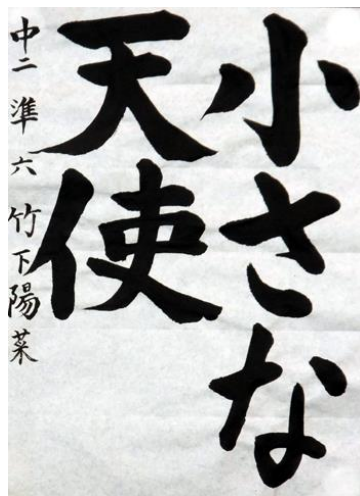 小さな
天使
中二 準六 竹下陽菜